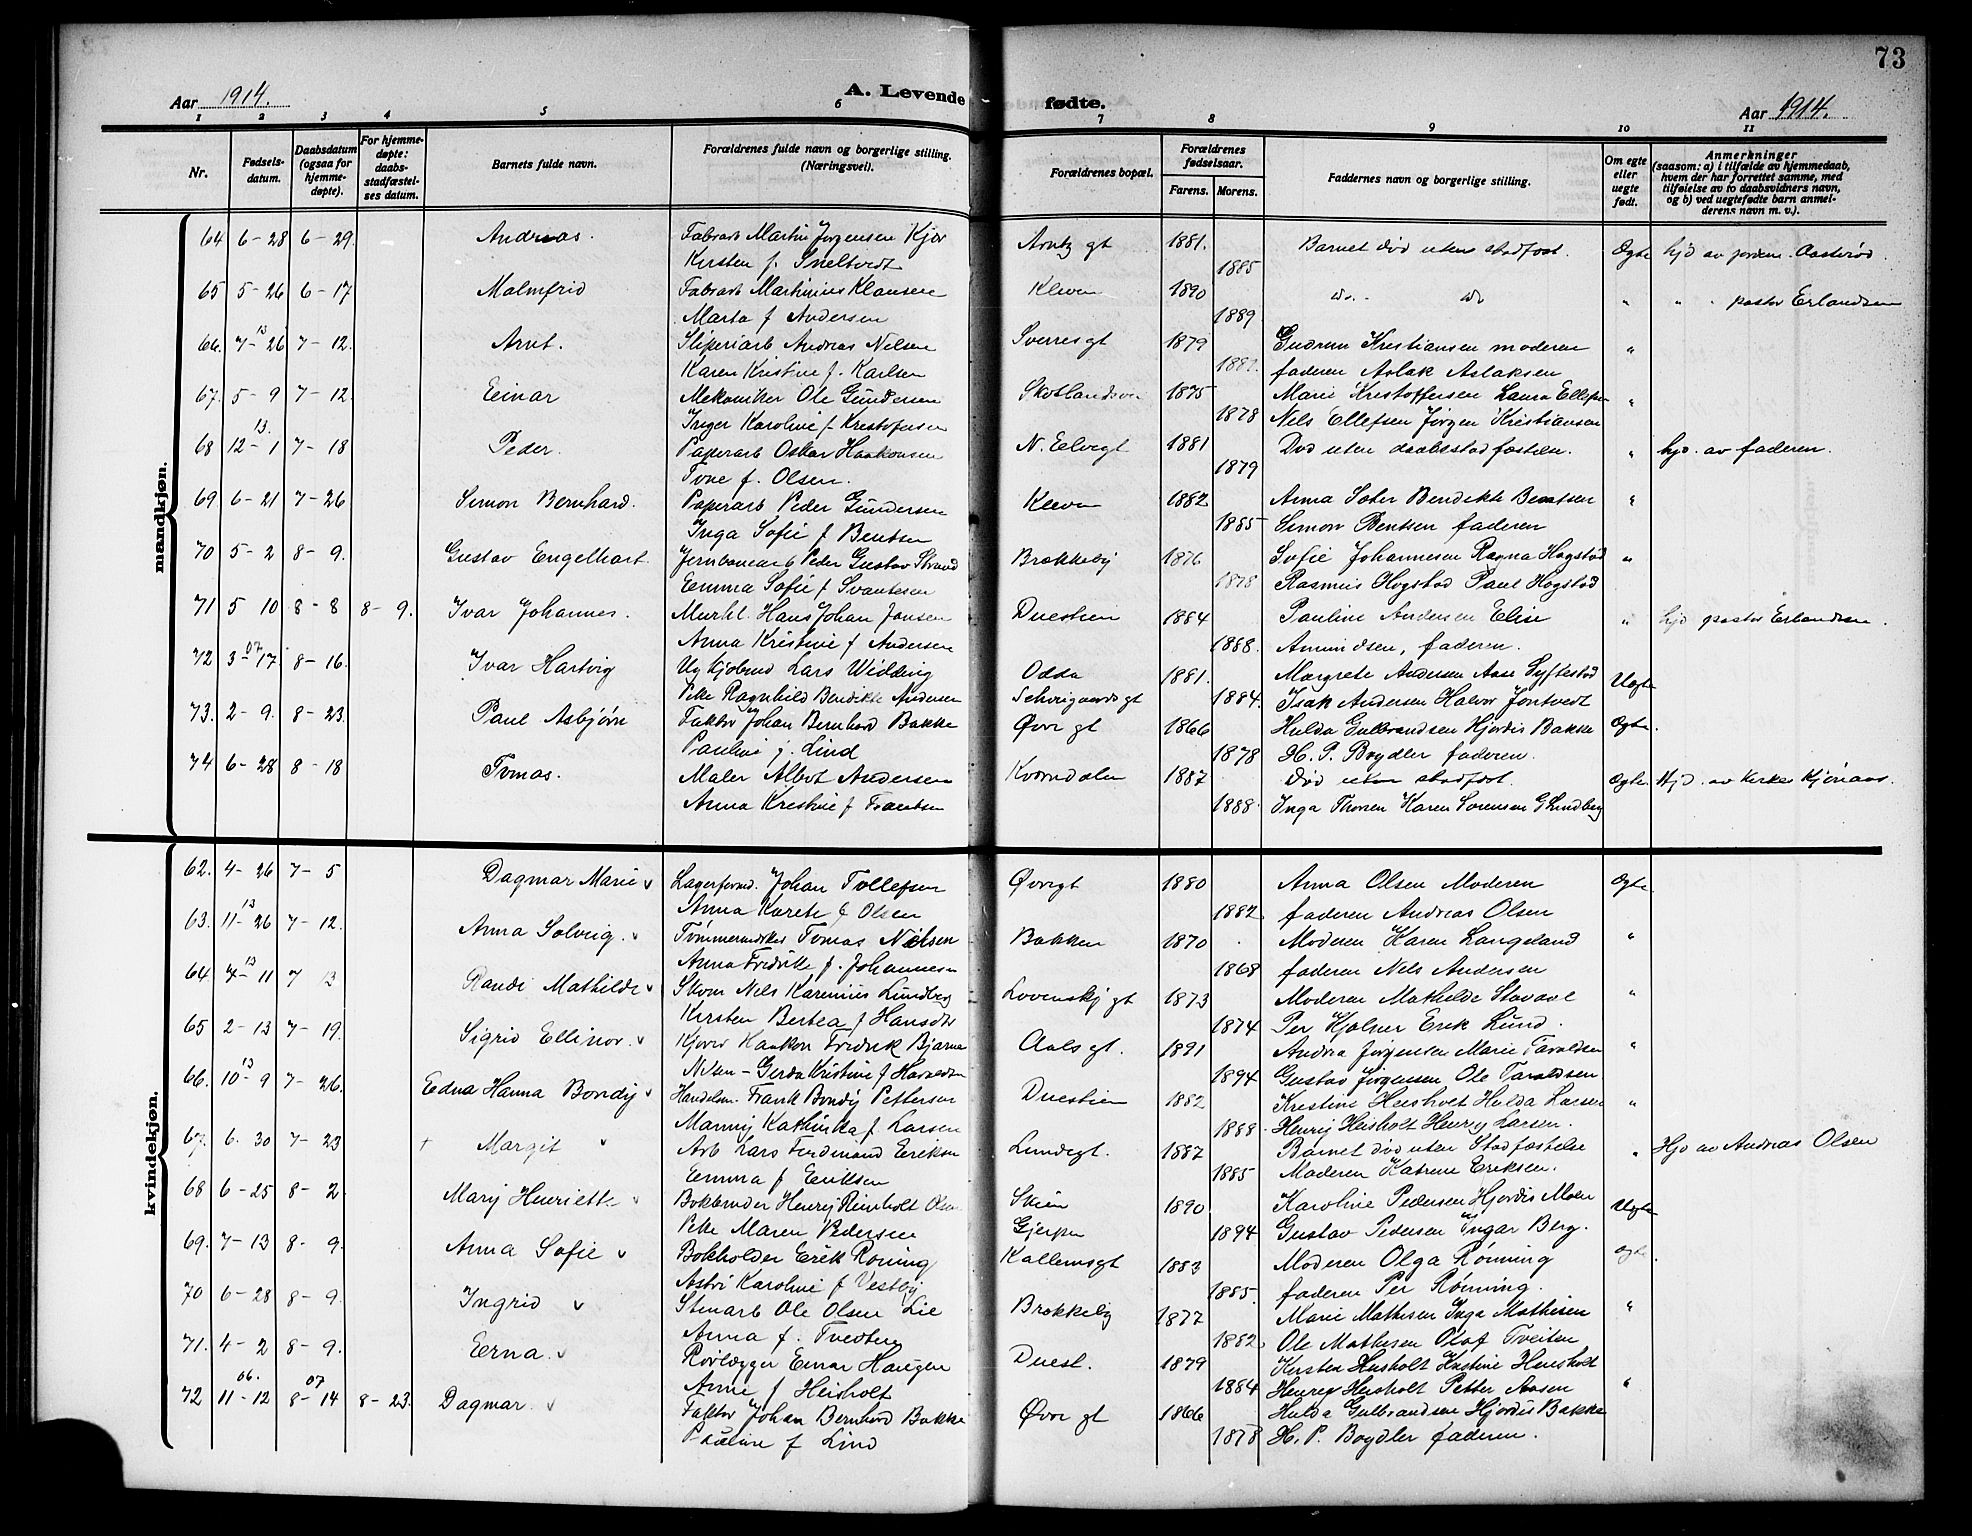 73
Aar 1914. A. Levende fødte. Aar 1914.
1 2 3 4 5 6 7 8 9 10 11
Nr. Fødsels-datum. Daabsdatum (ogsaa for hjemme-døpte). For hjemme-døpte: daabs-stadfæstel-ses datum. Barnets fulde navn. Forældrenes fulde navn og borgerlige stilling. (Næringsvei). Forældrenes bopæl. Forældrenes fødselsaar. Farens. Morens. Faddernes navn og borgerlige stilling. Om egte eller uegte født. Anmerkninger (saasom: a) i tilfælde av hjemmedaab, hvem der har forrettet samme, med tilføielse av to daabsvidners navn, og b) ved uegtefødte barn anmel-derens navn m. v.).
mandkjøn.
64 6-28 6-29. Andreas. Fabrarb Martin Jørgensen Kjær Arntz gt 1881. Barnet død uten stadfæst. Ægte hjd av jordm. Aasterød
Kirsten f. Sneltvedt 1885
65 5-26 6-17 Malmfrid Fabrarb Martinius Klausen Kleven 1890 do. do " " pastor Erlandsen
Marta f Andersen 1889
66. 7-26 13 7-12. Arnt. Sliperiarb Andreas Nilsen Sverresgt 1879 Gudrun Kristiansen moderen "
Karen Kristine f. Karlsen faderen Aslak Aslaksen
67. 5-9 7-12. Einar Mekaniker Ole Gundersen 1875 Marie Kristoffersen Laura Ellefsen "
Inger Karoline f Kristofersen 1878 Nils Ellefsen Jørgen Kristiansen
68 12-1 13. 7-18 Peder. Papirarb Oskar Haakonsen N. Elvegt 1881 Død uten daabsstadfæstelse. " hjd. av faderen.
Tone f. Olsen. 1879
69 6-21 7-26 Simon Bernhard. Papirarb Peder Gundersen Kleven 1882 Anna Sæter Bendikte Bentsen "
Inga Sofie f Bentsen 1885 Simon Bentsen faderen
70 5-2 8-9. Gustav Engelhart. Jernbanearb Peder Gustav Strand Brækkeby 1876 Sofie Johannesen Ragna Hogstad "
Emma Sofie f Svantesen 1878 Rasmus Hogstad Paul Hogstad
71 5 10 8-8 8-9. Ivar Johannes. Murhl. Hans Johan Jansen Duestien 1884 Pauline Andersen Elise " hjd pastor Erlandsen.
Anna Kristine f Andersen 1888. Amundsen, faderen.
72 3-17 07 8-16. Ivar Hartvig Ug Kjøbmd Lars Widding Odda 1881. Margrete Andersen Aase Syftestad Uægte
Pike Ragnhild Bendikte Andersen Schweigaardsgt 1884. Isak Andersen Halvor Jontvedt
73. 2-9. 8-23. Paul Asbjørn Faktor Johan Bernhard Bakke Øvre gt 1866 Hulda Gulbrandsen Hjørdis Bakke Ægte.
Pauline f. Lind 1878 H. P. Boydler faderen.
74 6-28 8-18 Tomas. Maler Albert Andersen Kværndalen 1887 Død uten stadfæst. Ægte. Hjd. av kirkes Kjønaas.
Anna Kristine f Frantsen 1888. Inga Thoresen Karen Sørensen G Lundberg
kvindekjøn.
62. 4-26 7-5 Dagmar Marie v Lagerformd. Johan Tollefsen Øvregt 1880 Anna Olsen Moderen Ægte
Anna Karete f Olsen 1882. faderen Andreas Olsen
63. 11-26 13 7-12. Anna Solveig. v Tømmermdsker Tomas Nilsen Bakken 1870 Moderen Karen Langeland "
Anna Fredrike f. Johannesen 1868 faderen Nels Andersen
64 7-11 13 7 13 Randi Mathilde v Skom Nils Karenius Lundberg Løvenskj gt 1873 Moderen Mathilde Stavare "
Kirsten Bertea f Hansdtr 1874 Per Kjølner Erik Lund.
65 2-13 7-19. Sigrid Ellinor. v Kjører Haakon Fredrik Bjarne Aalsgt. 1891 Andrea Jørgensen Marie Taraldsen "
Nilsen - Gerda Kristine f Haraldsen 1894 Gustav Jørgensen Ole Taraldsen
66. 10-9 13 7-26. Edna Hanna Bondy v Handelsm. Frank Bondy Pettersen Duestien 1882 Kristine Heisholt Hulda Larsen "
Manny Kathinka f Larsen 1888 Henry Heisholt Henry Larsen.
67. 6. 30 7-23 † Margit v Arb Lars Ferdinand Eriksen Lundegt. 1887 Barnet død uten Stadfæstelse " Hjd av Andreas Olsen
Emma f Eriksen 1885 Moderen Katrine Eriksen.
68 6-25 8-2. Mary Henriette v Bokbinder Henry Reinholt Olsen Skien 1890 Karoline Pedersen Hjørdis Moen Uægte
Pike Maren Pedersen Gjerpen 1894 Gustav Pedersen Ingar Berg.
69. 7-13 8-9. Anna Sofie v Bokholder Erik Rønning Kallemsgt 1883 Moderen Olga Rønning Ægte.
Astri Karoline f Vestby 1885. faderen Per Rønning.
70 6-28 8-9. Ingrid v Stenarb Ole Olsen Lie Brækkeby 1877 Marie Mathisen Inga Mathisen "
Anna f. Tvedberg 1882. Ole Mathisen Olaf Tveiten
71. 4-2 8-9. Erna v Rørlægger Einar Haugen Duest. 1879 Kirsten Heisholt Kristine Heisholt
Anne f Heisholt 1884 Henry Heisholt Petter Aasen "
72 11-12 06. 8-14 07 8-23. Dagmar v Faktor Johan Bernhard Bakke Øvre gt 1866 Hulda Gulbrandsen Hjørdis Bakke
Pauline f Lind 1878 H. P. Boydler faderen.